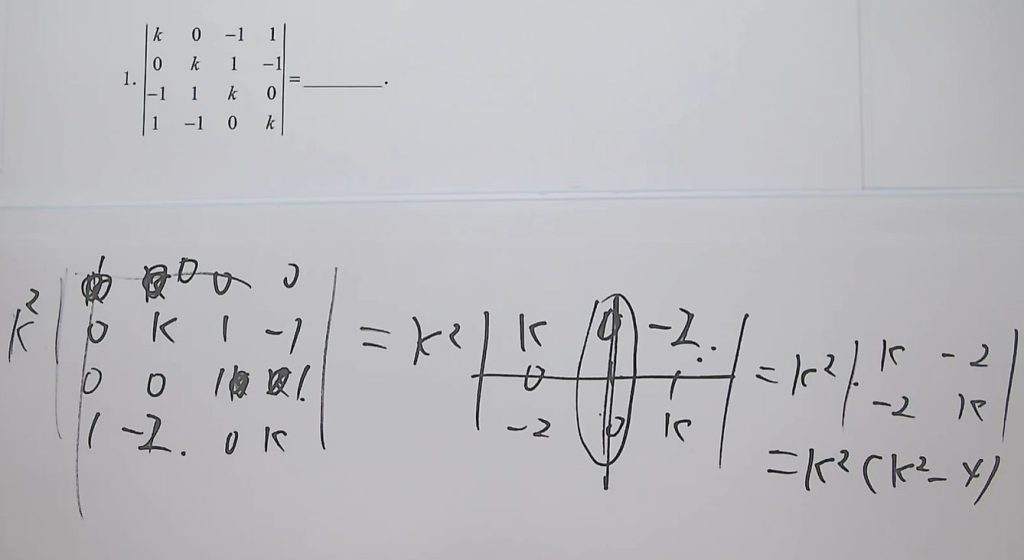 1. | k 0 −1 1 |
| 0 k 1 −1 |
| −1 1 k 0 | = ________ .
| 1 −1 0 k |
k² | 1 0 0 0 |
| 0 k 1 −1 |
| 0 0 1 1 |
| 1 −2. 0 k |
= k² | k 0 −2. |
| 0 1 |
| −2 0 k |
= k² | k −2 |
| −2 k |
= k² (k² − 4)